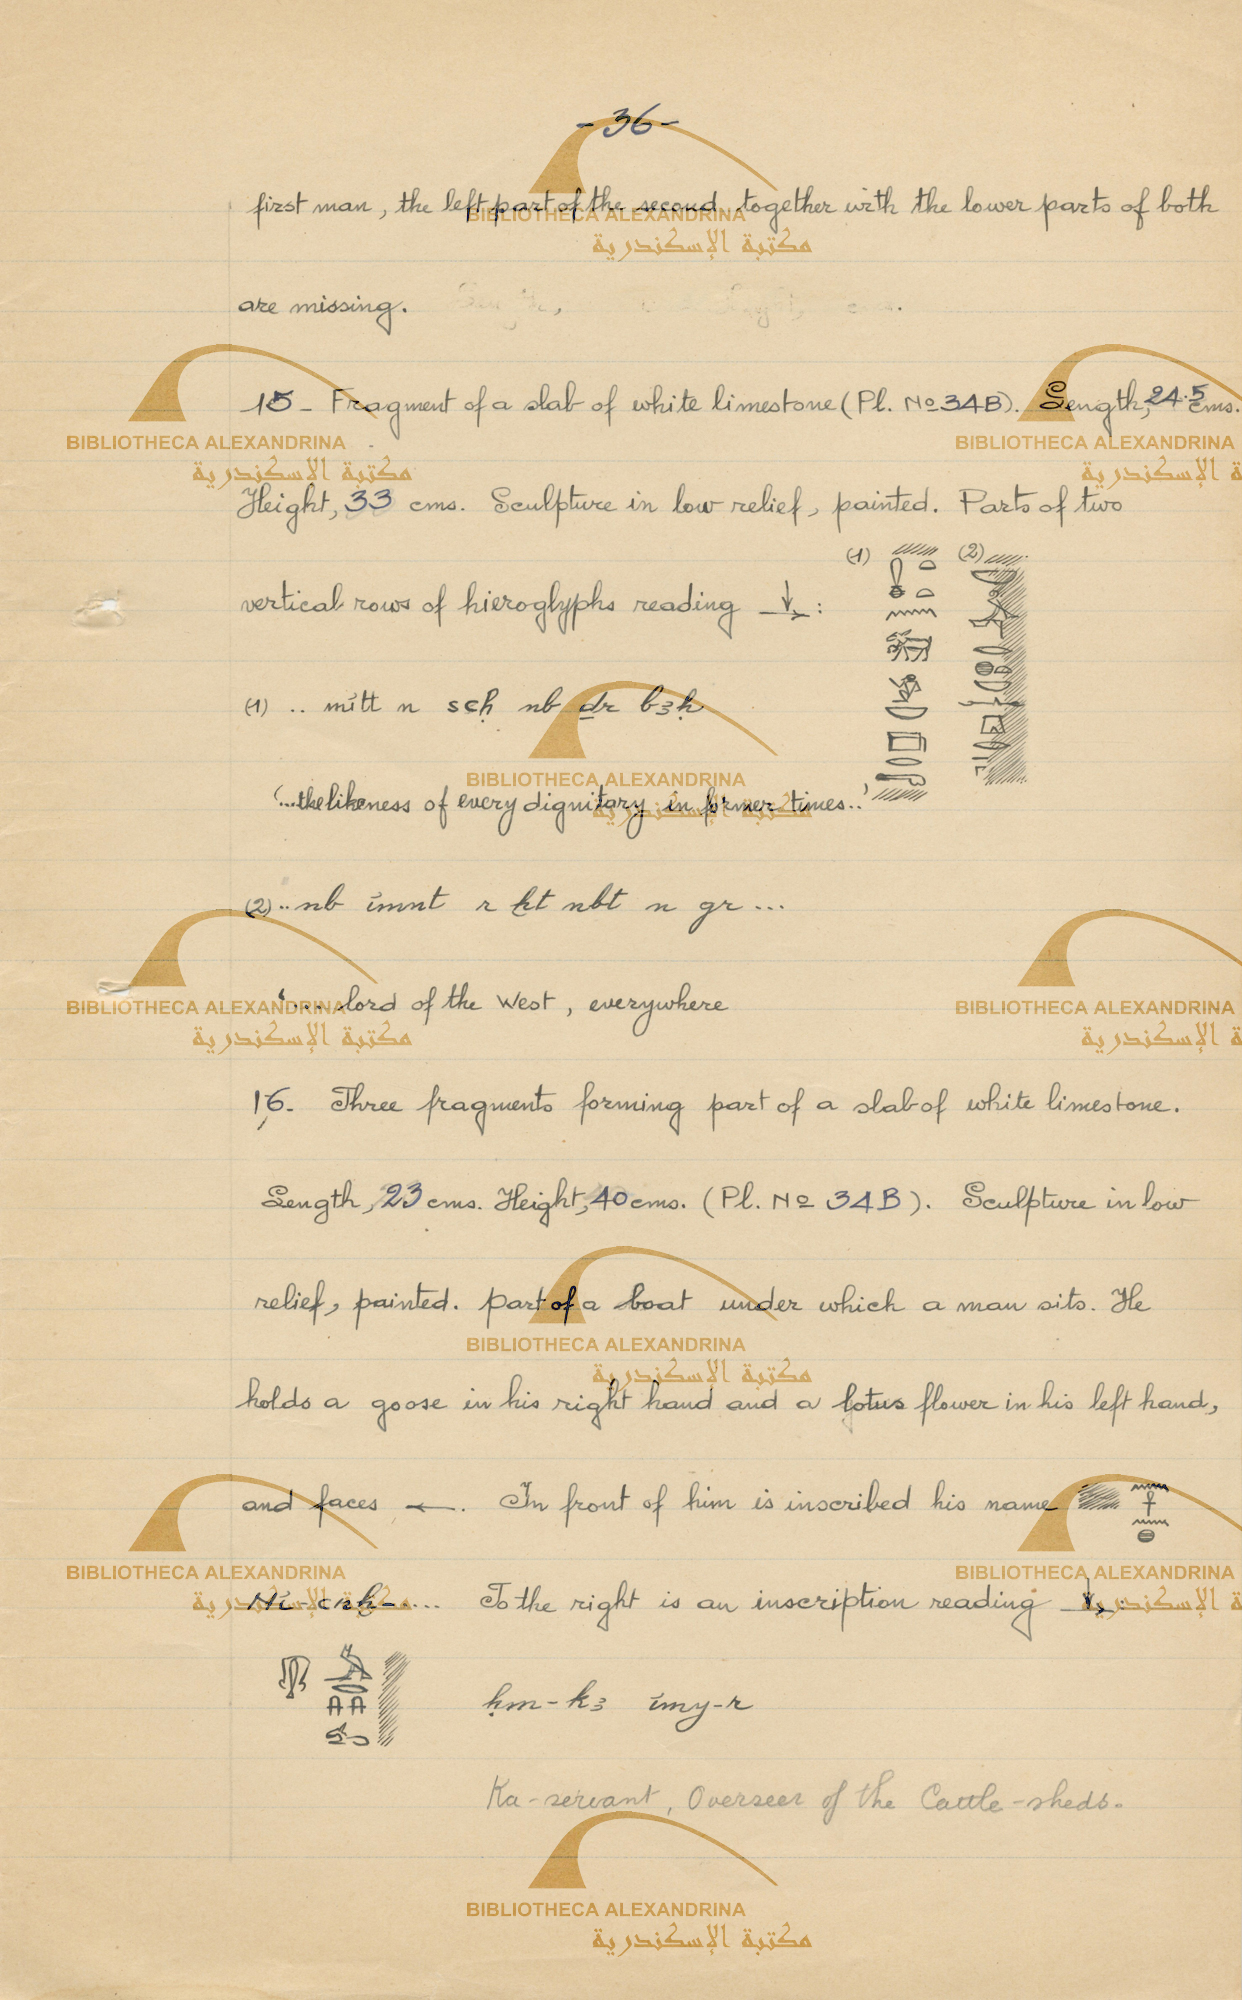 - 36 -
first man, the left part of the second, together with the lower parts of both
are missing.
15 - Fragment of a slab of white limestone (Pl. Nº 34B). Length, 24.5 cms.
Height, 33 cms. Sculpture in low relief, painted. Parts of two
vertical rows of hieroglyphs reading ↓→ :
(1) (2)
(1) .. mitt n scḥ nb ḏr bꜣḥ
'...the likeness of every dignitary in former times..'
(2) .. nb imnt r ḫt nbt n gr ...
'.... lord of the West, everywhere
16. Three fragments forming part of a slab of white limestone.
Length, 23 cms. Height, 40 cms. (Pl. Nº 34B). Sculpture in low
relief, painted. Part of a boat under which a man sits. He
holds a goose in his right hand and a lotus flower in his left hand,
and faces ←. In front of him is inscribed his name
Ni-cnḫ-... To the right is an inscription reading ↓→ :
ḥm-kꜣ imy-r
Ka-servant, Overseer of the Cattle-sheds.
BIBLIOTHECA ALEXANDRINA
مكتبة الإسكندرية